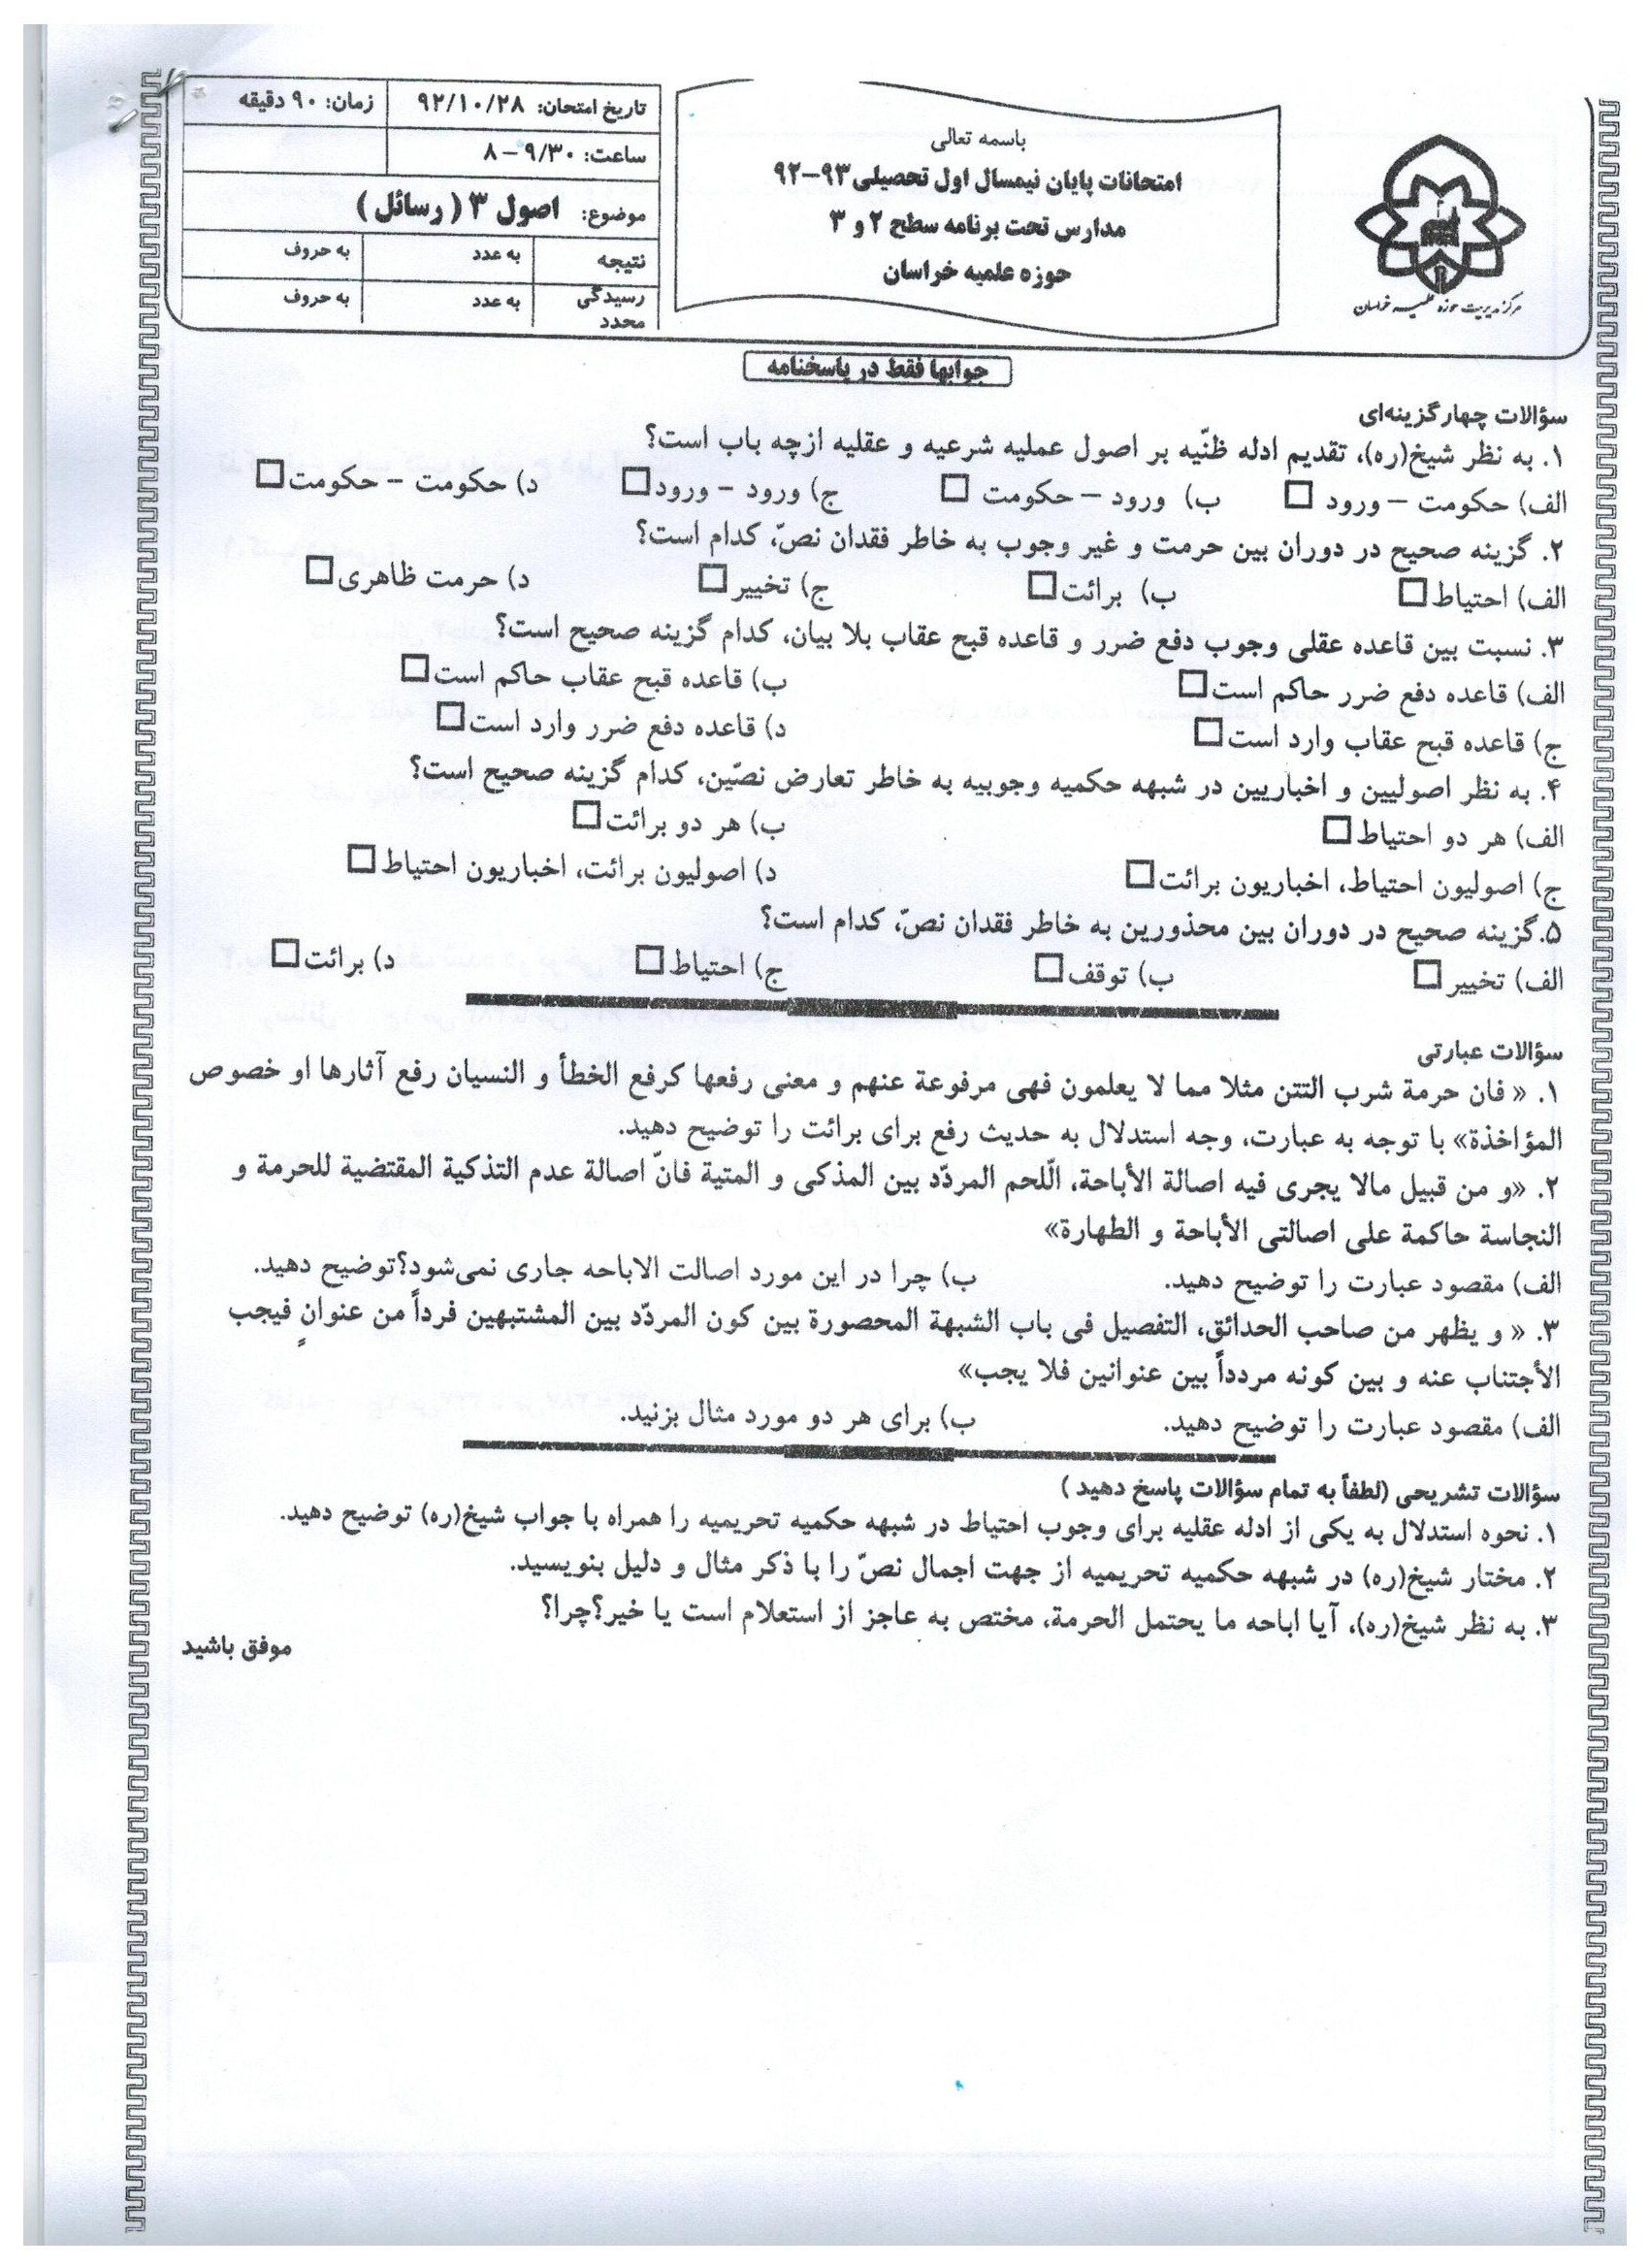 باسمه تعالی
امتحانات پایان نیمسال اول تحصیلی ۹۳–۹۲
مدارس تحت برنامه سطح ۲ و ۳
حوزه علمیه خراسان
مرکز مدیریت حوزه علمیه خراسان
تاریخ امتحان: ۹۲/۱۰/۲۸ زمان: ۹۰ دقیقه
ساعت: ۹/۳۰ – ۸
موضوع: اصول ۳ ( رسائل )
نتیجه به عدد به حروف
رسیدگی مجدد به عدد به حروف
جوابها فقط در پاسخنامه
سؤالات چهارگزینه‌ای
۱. به نظر شیخ(ره)، تقدیم ادله ظنّیه بر اصول عملیه شرعیه و عقلیه ازچه باب است؟
الف) حکومت – ورود □ ب) ورود – حکومت □ ج) ورود – ورود □ د) حکومت – حکومت □
۲. گزینه صحیح در دوران بین حرمت و غیر وجوب به خاطر فقدان نصّ، کدام است؟
الف) احتیاط □ ب) برائت □ ج) تخییر □ د) حرمت ظاهری □
۳. نسبت بین قاعده عقلی وجوب دفع ضرر و قاعده قبح عقاب بلا بیان، کدام گزینه صحیح است؟
الف) قاعده دفع ضرر حاکم است □ ب) قاعده قبح عقاب حاکم است □
ج) قاعده قبح عقاب وارد است □ د) قاعده دفع ضرر وارد است □
۴. به نظر اصولیین و اخباریین در شبهه حکمیه وجوبیه به خاطر تعارض نصّین، کدام گزینه صحیح است؟
الف) هر دو احتیاط □ ب) هر دو برائت □
ج) اصولیون احتیاط، اخباریون برائت □ د) اصولیون برائت، اخباریون احتیاط □
۵.گزینه صحیح در دوران بین محذورین به خاطر فقدان نصّ، کدام است؟
الف) تخییر □ ب) توقف □ ج) احتیاط □ د) برائت □
سؤالات عبارتی
۱. « فان حرمة شرب التتن مثلا مما لا یعلمون فهی مرفوعة عنهم و معنی رفعها کرفع الخطأ و النسیان رفع آثارها او خصوص
المؤاخذة» با توجه به عبارت، وجه استدلال به حدیث رفع برای برائت را توضیح دهید.
۲. «و من قبیل مالا یجری فیه اصالة الأباحة، الّلحم المردّد بین المذکی و المتیة فانّ اصالة عدم التذکیة المقتضیة للحرمة و
النجاسة حاکمة علی اصالتی الأباحة و الطهارة»
الف) مقصود عبارت را توضیح دهید. ب) چرا در این مورد اصالت الاباحه جاری نمی‌شود؟توضیح دهید.
۳. « و یظهر من صاحب الحدائق، التفصیل فی باب الشبهة المحصورة بین کون المردّد بین المشتبهین فرداً من عنوانٍ فیجب
الأجتناب عنه و بین کونه مردداً بین عنوانین فلا یجب»
الف) مقصود عبارت را توضیح دهید. ب) برای هر دو مورد مثال بزنید.
سؤالات تشریحی (لطفاً به تمام سؤالات پاسخ دهید )
۱. نحوه استدلال به یکی از ادله عقلیه برای وجوب احتیاط در شبهه حکمیه تحریمیه را همراه با جواب شیخ(ره) توضیح دهید.
۲. مختار شیخ(ره) در شبهه حکمیه تحریمیه از جهت اجمال نصّ را با ذکر مثال و دلیل بنویسید.
۳. به نظر شیخ(ره)، آیا اباحه ما یحتمل الحرمة، مختص به عاجز از استعلام است یا خیر؟چرا؟
موفق باشید